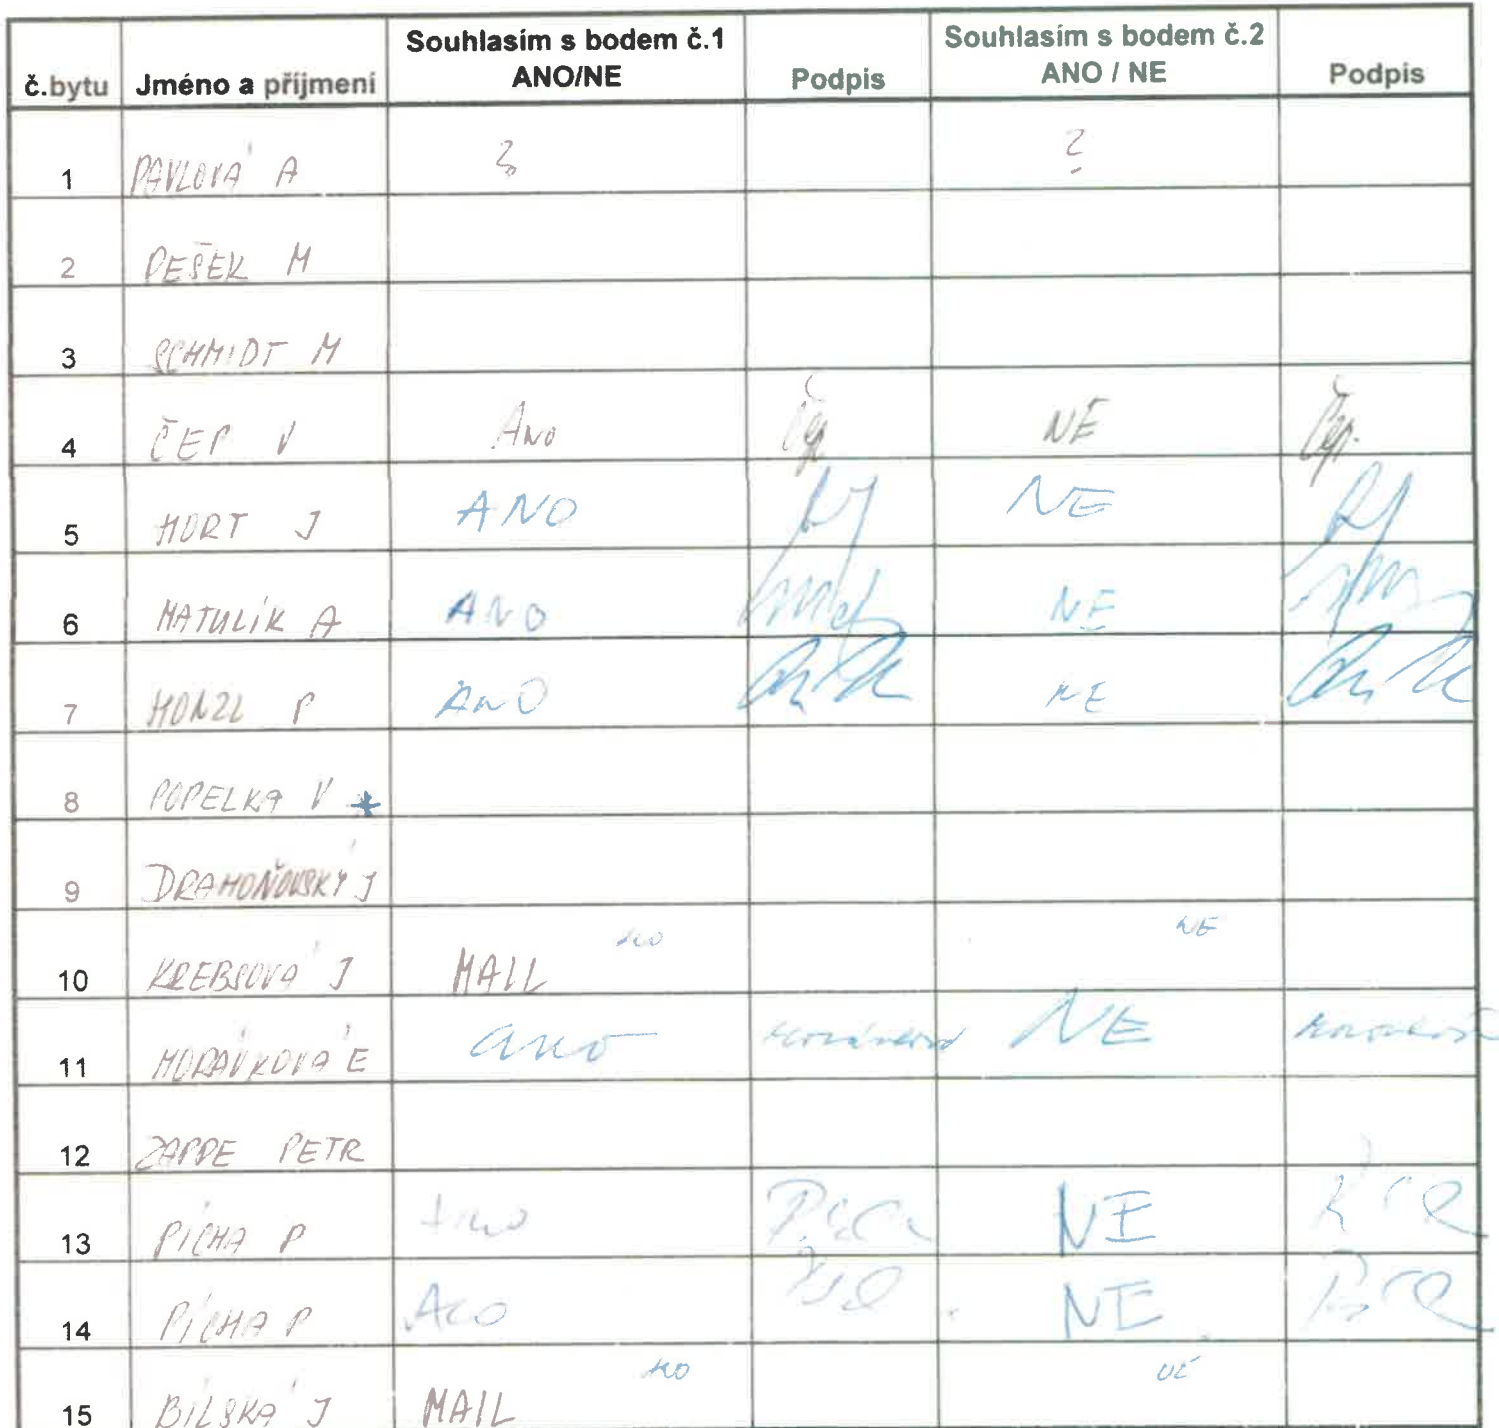 č.bytu Jméno a příjmení Souhlasím s bodem č.1 ANO/NE Podpis Souhlasím s bodem č.2 ANO / NE Podpis
1 PAVLOVÁ A ? ?
2 PEŠEK M
3 SCHMIDT M
4 ČEP V ANO Čep NE Čep.
5 HORT J ANO NE
6 MATULÍK A ANO NE
7 HONZL P ANO NE
8 POPELKA V *
9 DRAHOŇOVSKÝ J
10 KREBSOVÁ J MAIL ANO NE
11 MORÁVKOVÁ E ano Morávková NE Morávková
12 ZAPPE PETR
13 PÍCHA P Ano NE
14 PÍCHA P Ano NE
15 BÍLSKÁ J MAIL ANO NE